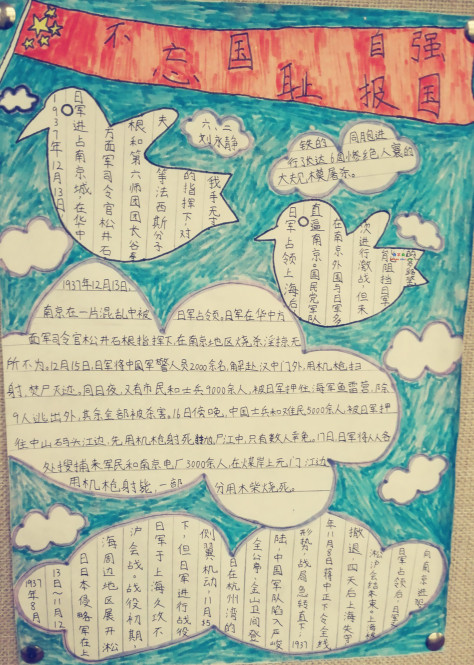 不忘国耻 自强报国
六、二
刘永静
1937年12月13日
日军进占南京城,在华中
方面军司令官松井石
根和第六师团团长谷寿
夫
等法西斯分子
的指挥下对
我手无寸
铁的
同胞进
行了长达6周
大规模屠杀。
日军占领上海后
直逼南京。国民党军队
在南京外围与日军多
次进行激战,但未
能阻挡日军
1937年12月13日,
南京在一片混乱中被
日军占领。日军在华中方
面军司令官松井石根指挥下,在南京地区烧杀淫掠无
所不为。12月15日,日军将中国军警人员2000余名,解赴汉中门外,用机枪扫
射,焚尸灭迹。同日夜,又有市民和士兵9000余人,被日军押往海军鱼雷营,除
9人逃出外,其余全部被杀害。16日傍晚,中国士兵和难民5000余人,被日军押
往中山码头江边,先用机枪射死,
尸江中,只有数人幸免。17日,日军将
各处搜捕来军民和南京电厂3000余人,在煤岸上元门江边
用机枪射毙,一部
分用木柴烧死。
1937年8月
13日~11月12
日日本侵略军在上
海周边地区展开淞
沪会战。战役初期,
日军于上海久攻不
下,但日军进行战役
侧翼机动,11月5
日在杭州湾的
全公亭、金山卫间登
陆,中国军队陷入严峻
形势,战局急转直下。1937
年11月8日蒋中正下令全线
撤退,四天后上海失守
淞沪会战结束。上海被
日军占领后,日军
向南京进